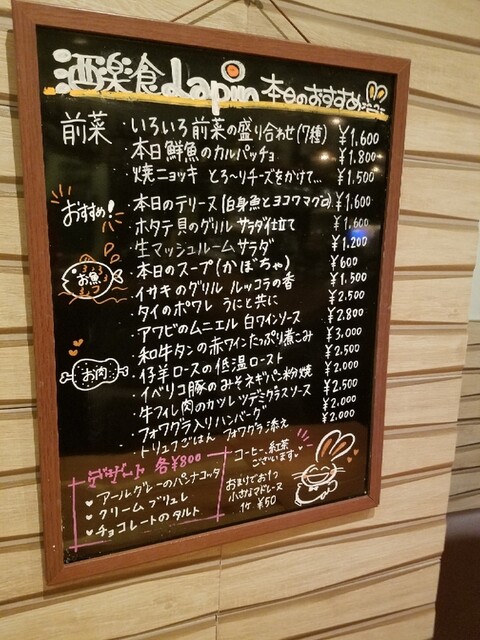 酒楽食 Lapin 本日のおすすめ
前菜
・いろいろ前菜の盛り合わせ(7種) ¥1,600
・本日鮮魚のカルパッチョ ¥1,800
・焼ニョッキ とろ〜りチーズをかけて… ¥1,500
おすすめ!
・本日のテリーヌ(白身魚とヨコワマグロ) ¥1,600
・ホタテ貝のグリル サラダ仕立て ¥1,600
・生マッシュルームサラダ ¥1,200
・本日のスープ(かぼちゃ) ¥600
お魚
・イサキのグリル ルッコラの香 ¥1,500
・タイのポワレ うにと共に ¥2,500
・アワビのムニエル 白ワインソース ¥2,800
お肉
・和牛タンの赤ワインたっぷり煮こみ ¥3,000
・仔羊ロースの低温ロースト ¥2,500
・イベリコ豚のみそネギパン粉焼 ¥2,000
・牛フィレ肉のカツレツデミグラスソース ¥2,500
・フォワグラ入りハンバーグ ¥2,000
・トリュフごはん フォワグラ添え ¥2,000
デザート 各¥800
アールグレーのパンナコッタ
クリームブリュレ
チョコレートのタルト
コーヒー、紅茶
ございます
おまけでお1つ
小さなマドレーヌ
1ケ ¥50